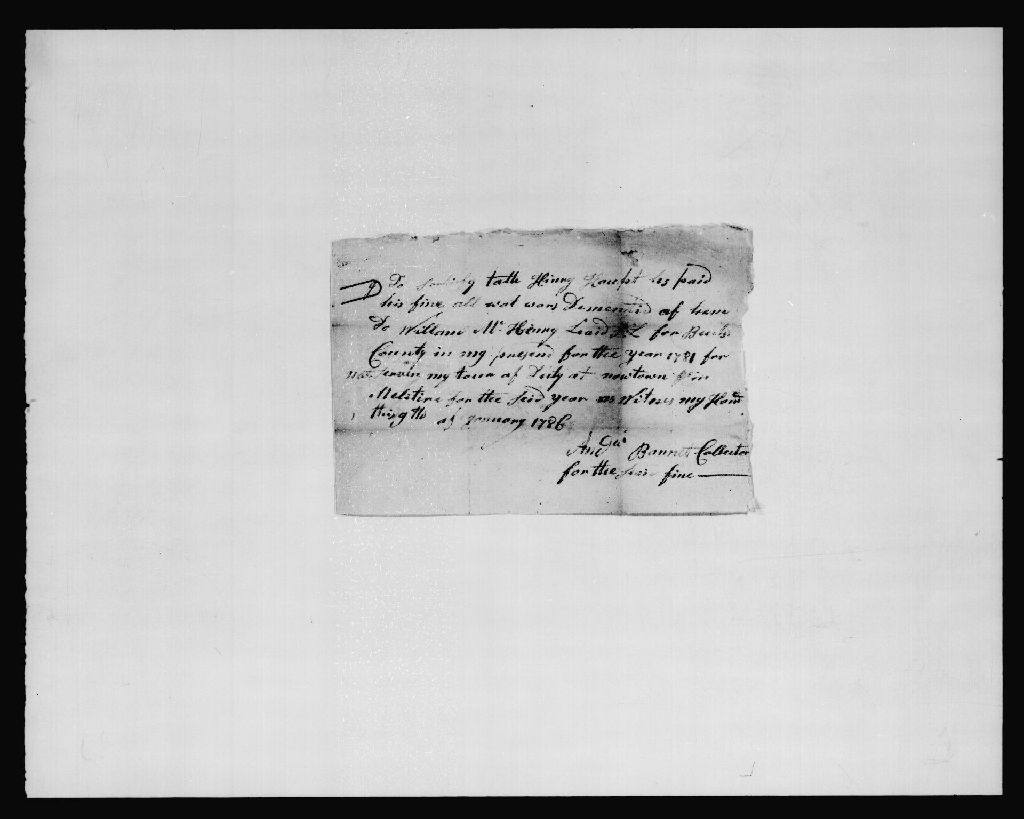 To Sertify tath Hinry Houpt hes paid
his fine all wat wors Demended of heme
To Willam Mc Henry Leard for Bucks
County in my presend for the year 1781 for
not Servin my tour of Duty at newtown in
Melitine for the seid year as Witnes my Hand
this 9th of January 1786
Bonnet Collector
for the seid fine